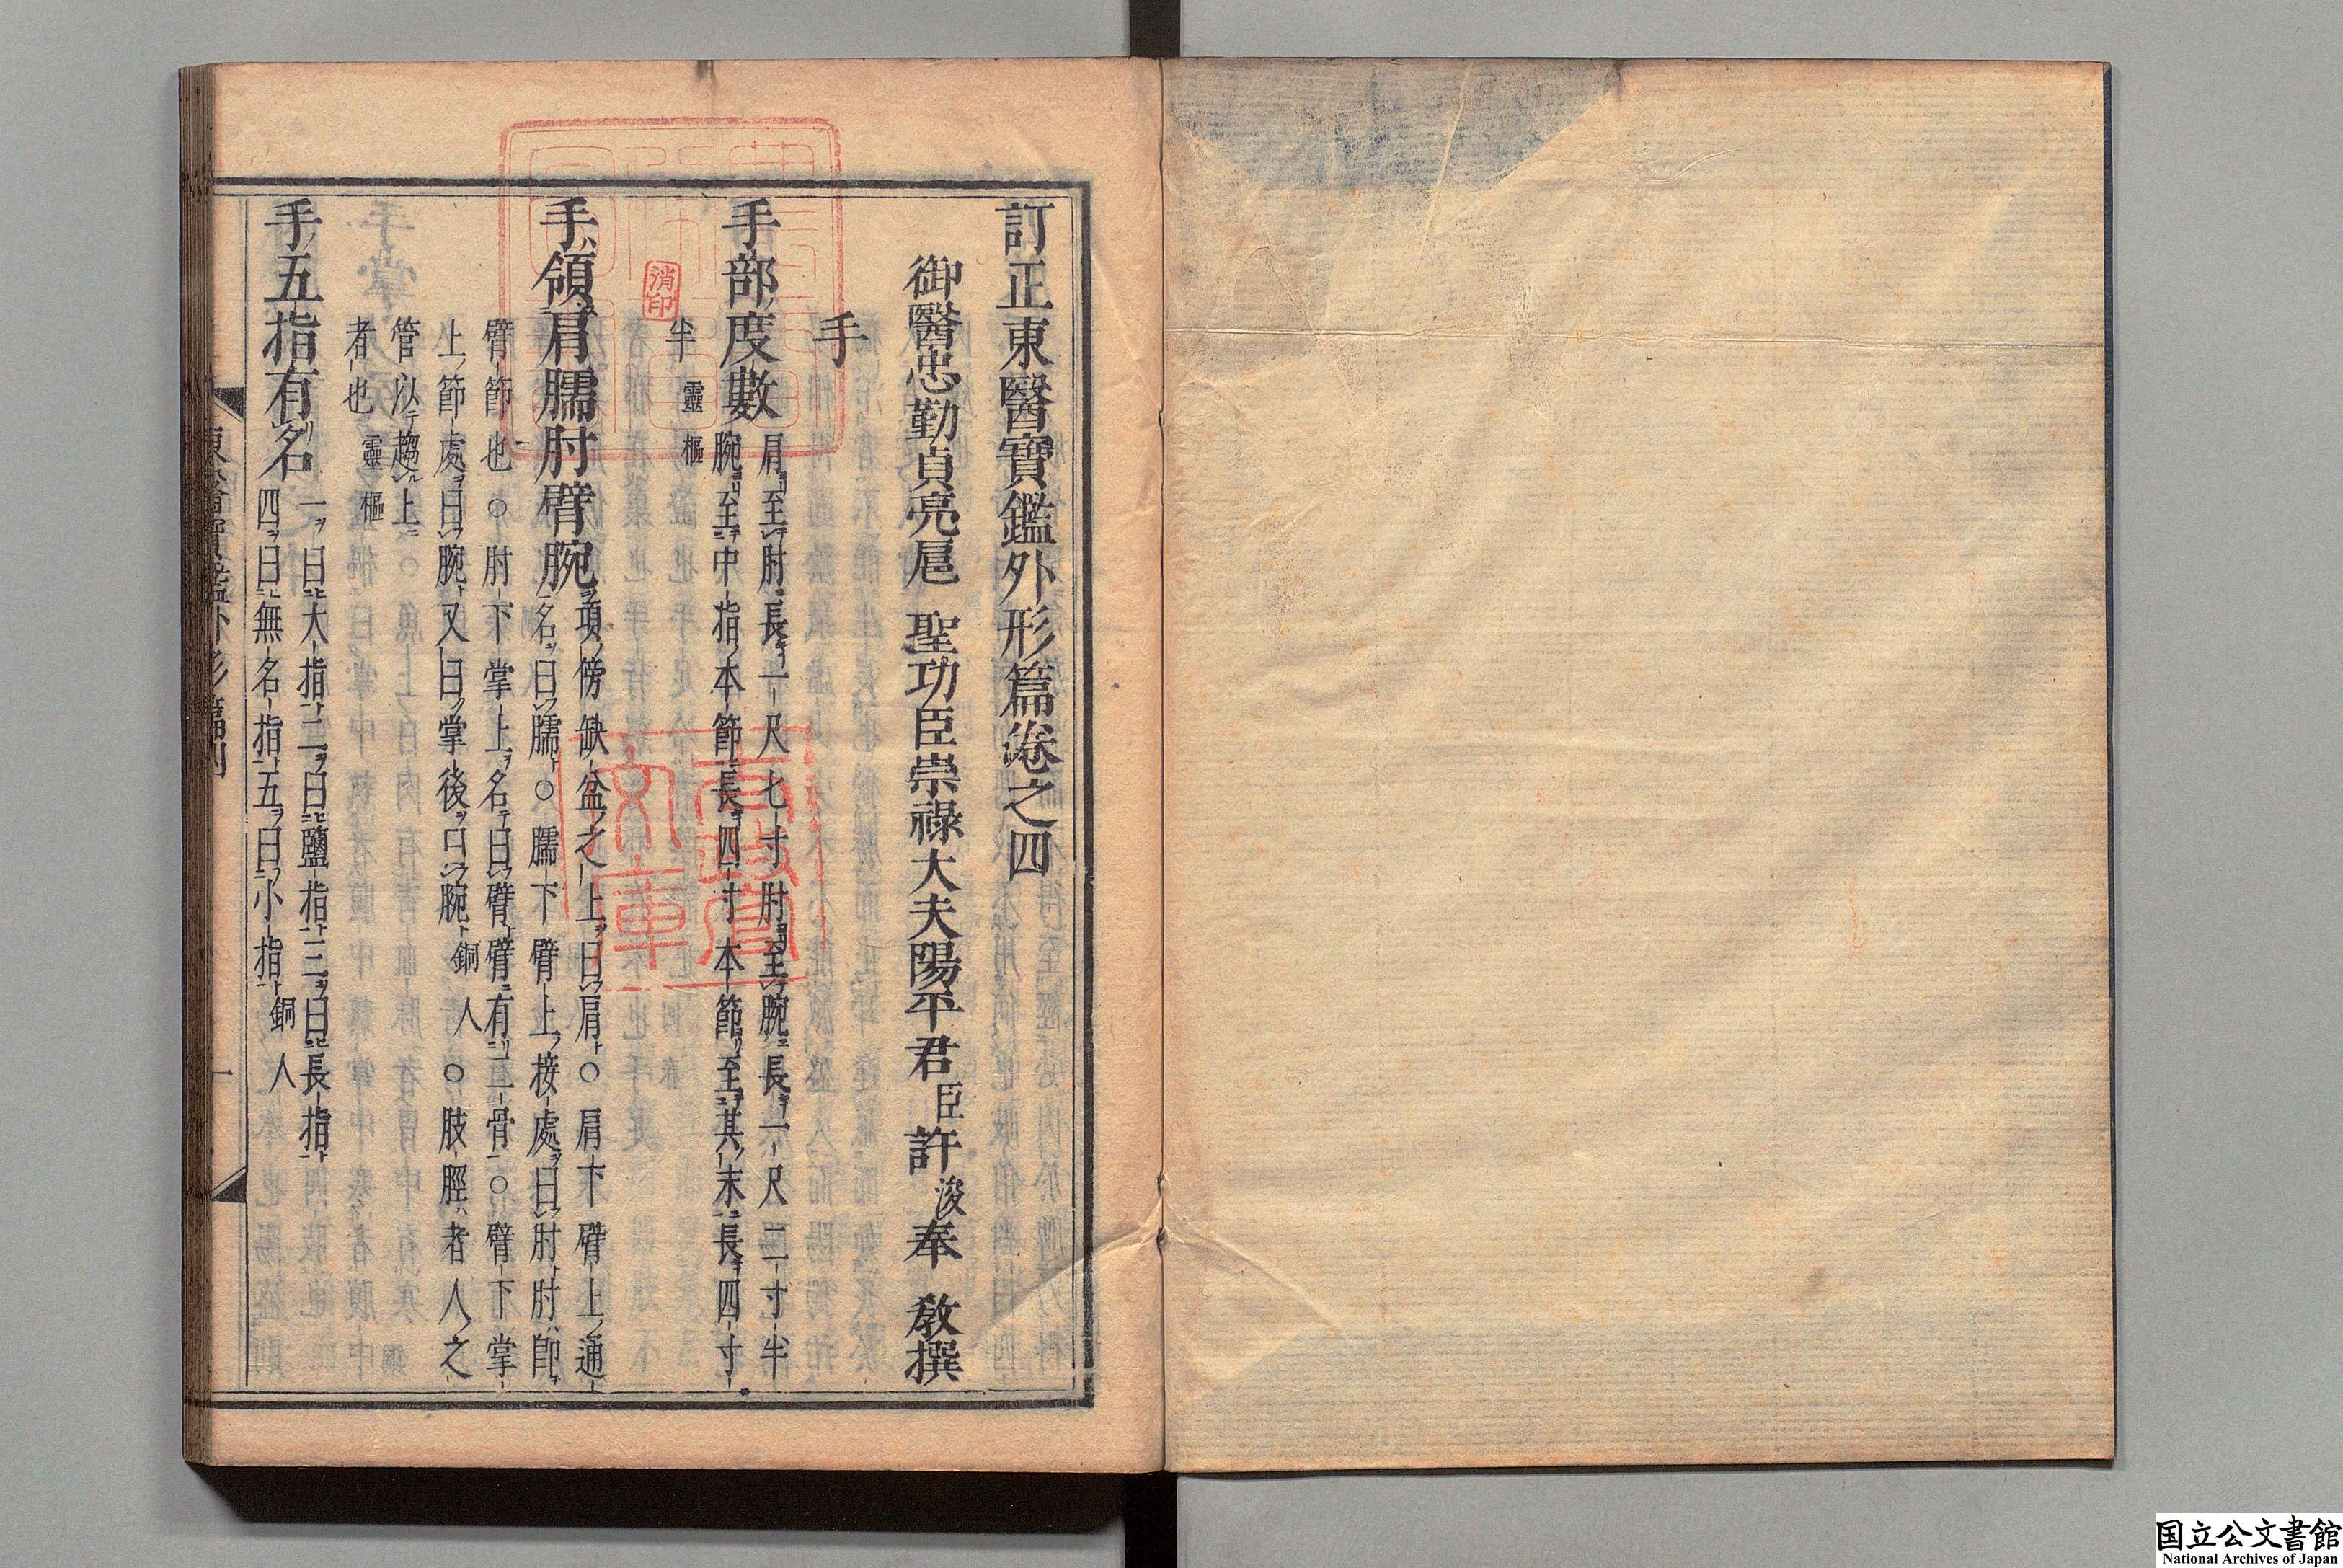 訂正東醫寶鑑外形篇卷之四
御醫忠勤貞亮扈 聖功臣崇祿大夫陽平君臣許浚奉 敎撰
手
手部度數 肩至肘長一尺七寸肘至腕長一尺二寸半
腕至中指本節長四寸本節至其末長四寸
半 靈樞
手領肩臑肘臂腕 項傍缺盆之上曰肩○肩下臂上通
名曰臑○臑下臂上接處曰肘肘卽
臂節也○肘下掌上名曰臂臂有二骨○臂下掌
上節處曰腕又曰掌後曰腕 銅人○肢脛者人之
管以趨上
者也 靈樞
手五指有名 一曰大指二曰鹽指三曰長指
四曰無名指五曰小指 銅人
東醫寶鑑外形篇四 一
消印
国立公文書館
National Archives of Japan